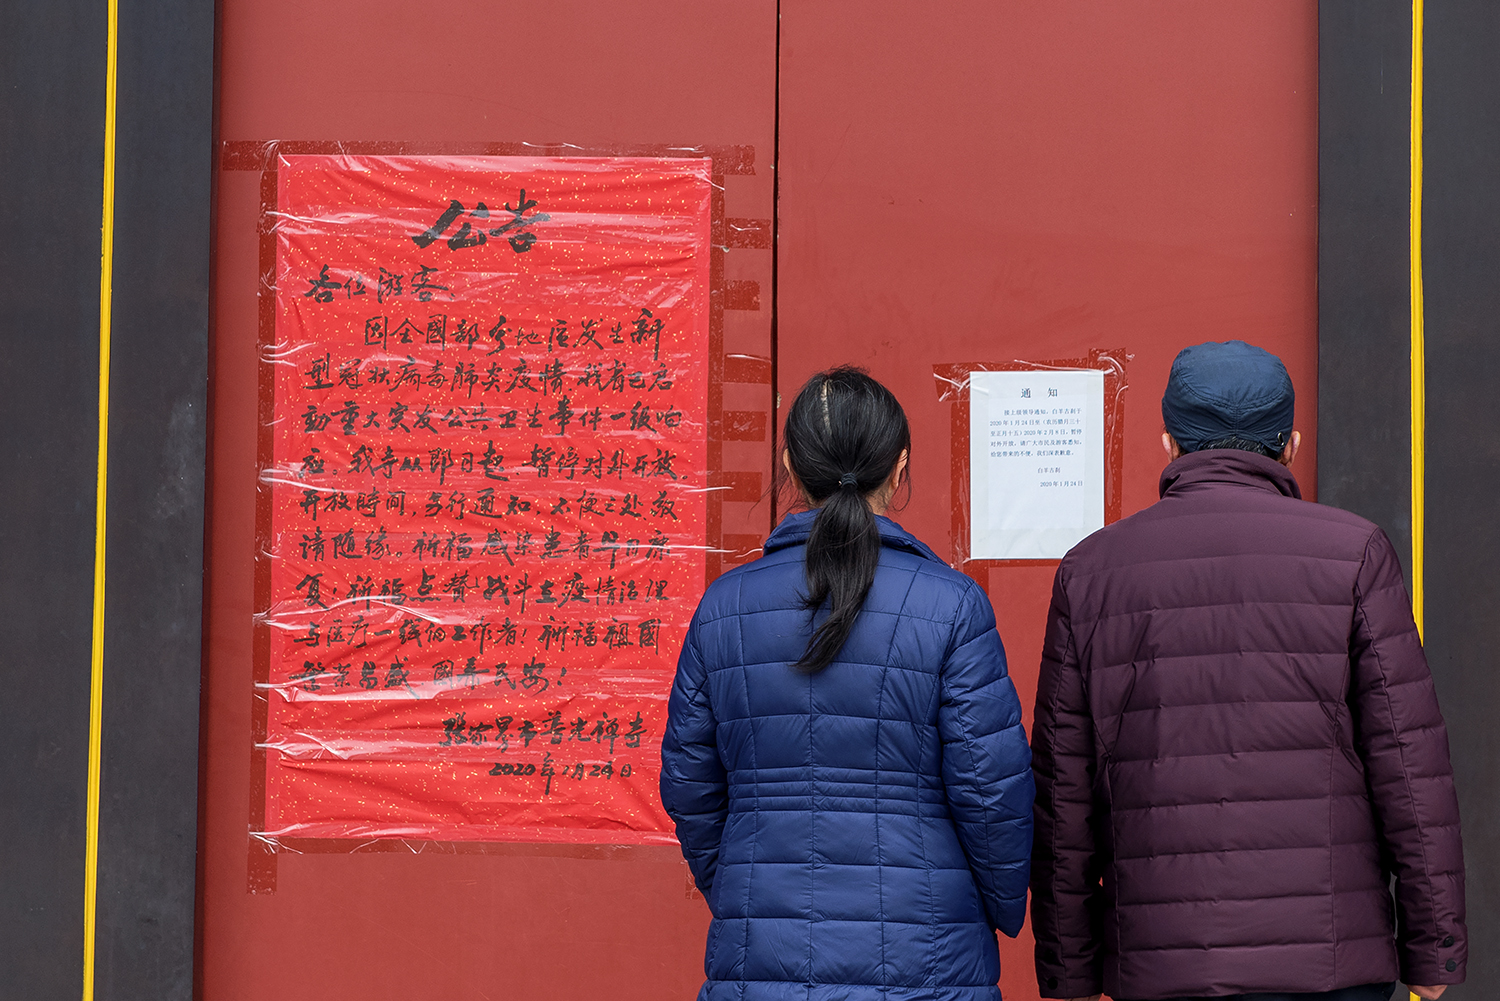 公告
各位游客、
因全國部分地区发生新
型冠状病毒肺炎疫情，我省已启
动重大突发公共卫生事件一级响
应。我寺从即日起暂停对外开放。
开放時间，另行通知，不便之处敬
请随缘。祈福感染患者早日康
复！祈福点赞战斗在疫情治理
与医疗一线的工作者！祈福祖國
繁荣昌盛 國泰民安！
張家界市普光禅寺
2020年1月24日
通 知
接上级领导通知，白羊古刹于
2020年1月24日至（农历腊月三十
至正月十五）2020年2月8日，暂停
对外开放，请广大市民及游客悉知，
给您带来的不便，我们深表歉意。
白羊古刹
2020年1月24日